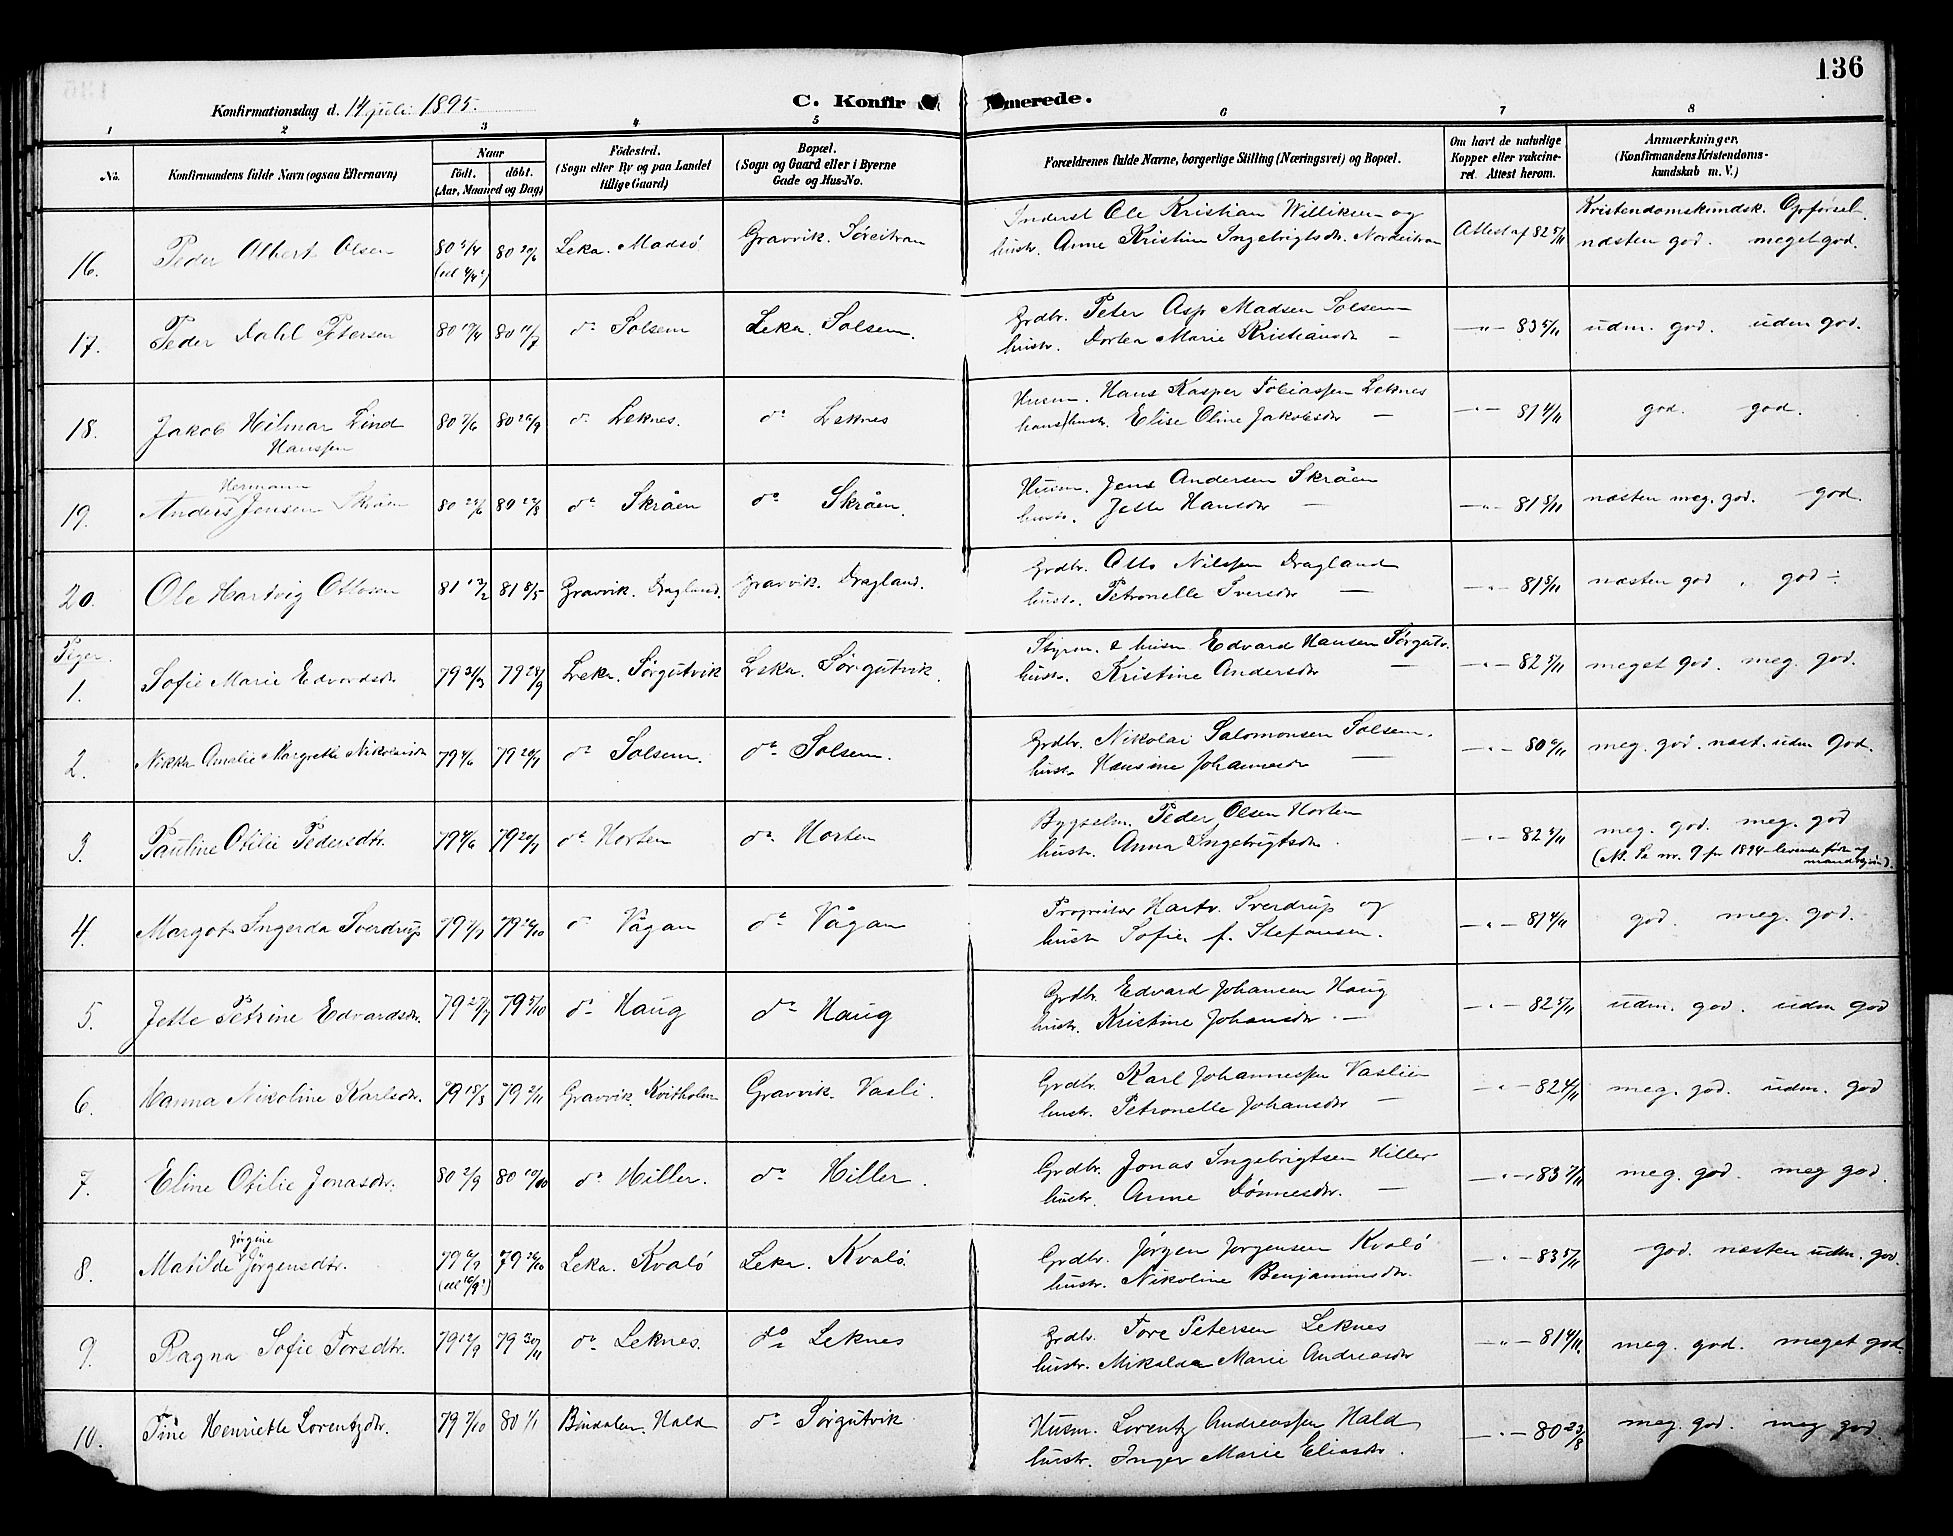 136
Konfirmationsdag d. 14 juli 1895.
C. Konfirmerede.
1 2 3 4 5 6 7 8
No. Konfirmandens fulde Navn (ogsaa Efternavn) Naar födt. döbt. (Aar, Maaned og Dag) Födested. (Sogn eller By og paa Landet tillige Gaard) Bopæl. (Sogn og Gaard eller i Byerne Gade og Hus-No. Forældrenes fulde Navne, borgerlige Stilling (Næringsvei) og Bopæl. Om havt de naturlige Kopper eller vakcineret. Attest herom. Anmærkninger. (Konfirmandens Kristendomskundskab m. V.)
Kristendomskundsk. Opförsel.
16. Peder Albert Olsen 80 5/4 80 20/6 Leka. Madsö Gravvik. Söreitran Inderst Ole Kristian Williksen og Attest af 82 5/11 næsten god. meget god.
hustr. Anne Kristine Ingebrigtsdr. Nordeitran
17. Peder Dahl Petersen 80 17/4 80 11/7 do Solsem Leka. Solsem. Grdbr. Peter Asp Madsen Solsem —"— 83 5/11 udm. god. udm god.
hustr. Dortea Marie Kristiansdr —
18. Jakob Hilmar Lind Hanssen 80 7/6 80 26/9 do Leknes. do Leknes Husm. Hans Kasper Tobiassen Leknes —"— 81 4/11 god. god.
hans hustr. Elise Oline Jakobsdr —
19. Anders Hermann Jensen Skråen 80 25/6 80 22/8 do Skråen do Skråen. Husm. Jens Andersen Skråen —"— 81 5/11 næsten meg. god. god.
hustr. Jette Hansdr —
20. Ole Hartvig Ottosen 81 13/2 81 8/5 Gravvik. Dragland. Gravvik. Dragland. Grdbr. Otto Nilssen Dragland —"— 81 5/11 næsten god god
hustr. Petronelle Iversdr —
Piger.
1. Sofie Marie Edvardsdr 79 31/3 79 28/9 Leka. Sörgutvik Leka. Sörgutvik. Styrm. & husm Edvard Hansen Sörgutv. —"— 82 5/11 meget god. meg. god.
hustr. Kristine Andersdr —
2. Nikka Amalie Margrethe Nikolaisdr 79 4/6 79 20/7 do Solsem. do Solsem. Grdbr. Nikolai Salomonsen Solsem. —"— 80 6/11 meg. god. næst. udm god.
hustr. Hansine Johannesdr —
3. Pauline Otilie Pedersdtr. 79 4/6 79 20/7 do Horten do Horten Bygselm. Peder Olsen Horten —"— 82 5/11 meg. god. meg. god
hustr. Anna Ingebrigtsdr. (N. Se nr. 9 for 1894
4. Margot Ingerda Sverdrup 79 7/7 do Vågan do Vågan Proprietær Hartv. Sverdrup og —"— 81 4/11 god. meg. god.
hustr Sofie f. Stefansen.
5. Jette Petrine Edvardsdr. 79 27/7 79 5/10 do Haug do Haug Grdbr. Edvard Johansen Haug —"— 82 5/11 udm. god. udm god
hustr. Kristine Johansdr. —
6. Hanna Nikoline Karlsdr. 79 18/8 79 2/11 Gravvik Kvistholm Gravvik. Vasli. Grdbr. Karl Johannessen Vaslien —"— 82 4/11 meg. god. udm. god
hustr. Petronelle Johansdr —
7. Eline Otilie Jonasdr. 80 2/9 80 10/10 do Hiller. do Hiller. Grdbr. Jonas Ingebrigtsen Hiller —"— 83 7/11 meg. god meg god.
hustr. Anne Tönnesdr. —
8. Matilde Jörgine Jörgensdtr. 79 6/9 79 26/10 Leka. Kvalö Leka. Kvalö. Grdbr. Jörgen Jörgensen Kvalö —"— 83 5/11 god. næsten udm. god.
hustr. Nikoline Benjaminsdr.
9. Ragna Sofie Torsdtr. 79 12/9 79 30/11 do Leknes. do Leknes Grdbr. Tore Petersen Leknes —"— 81 4/11. meg. god. meget god.
hustr. Mikalda Marie Andreasdr
10. Tine Henriette Lorentzdr. 79 7/10 80 1/1 Bindalen. Hald do Sörgutvik Husm. Lorentz Andreassen Hald —"— 80 23/8 meg. god meg god.
hustr. Inger Marie Eliasdr.